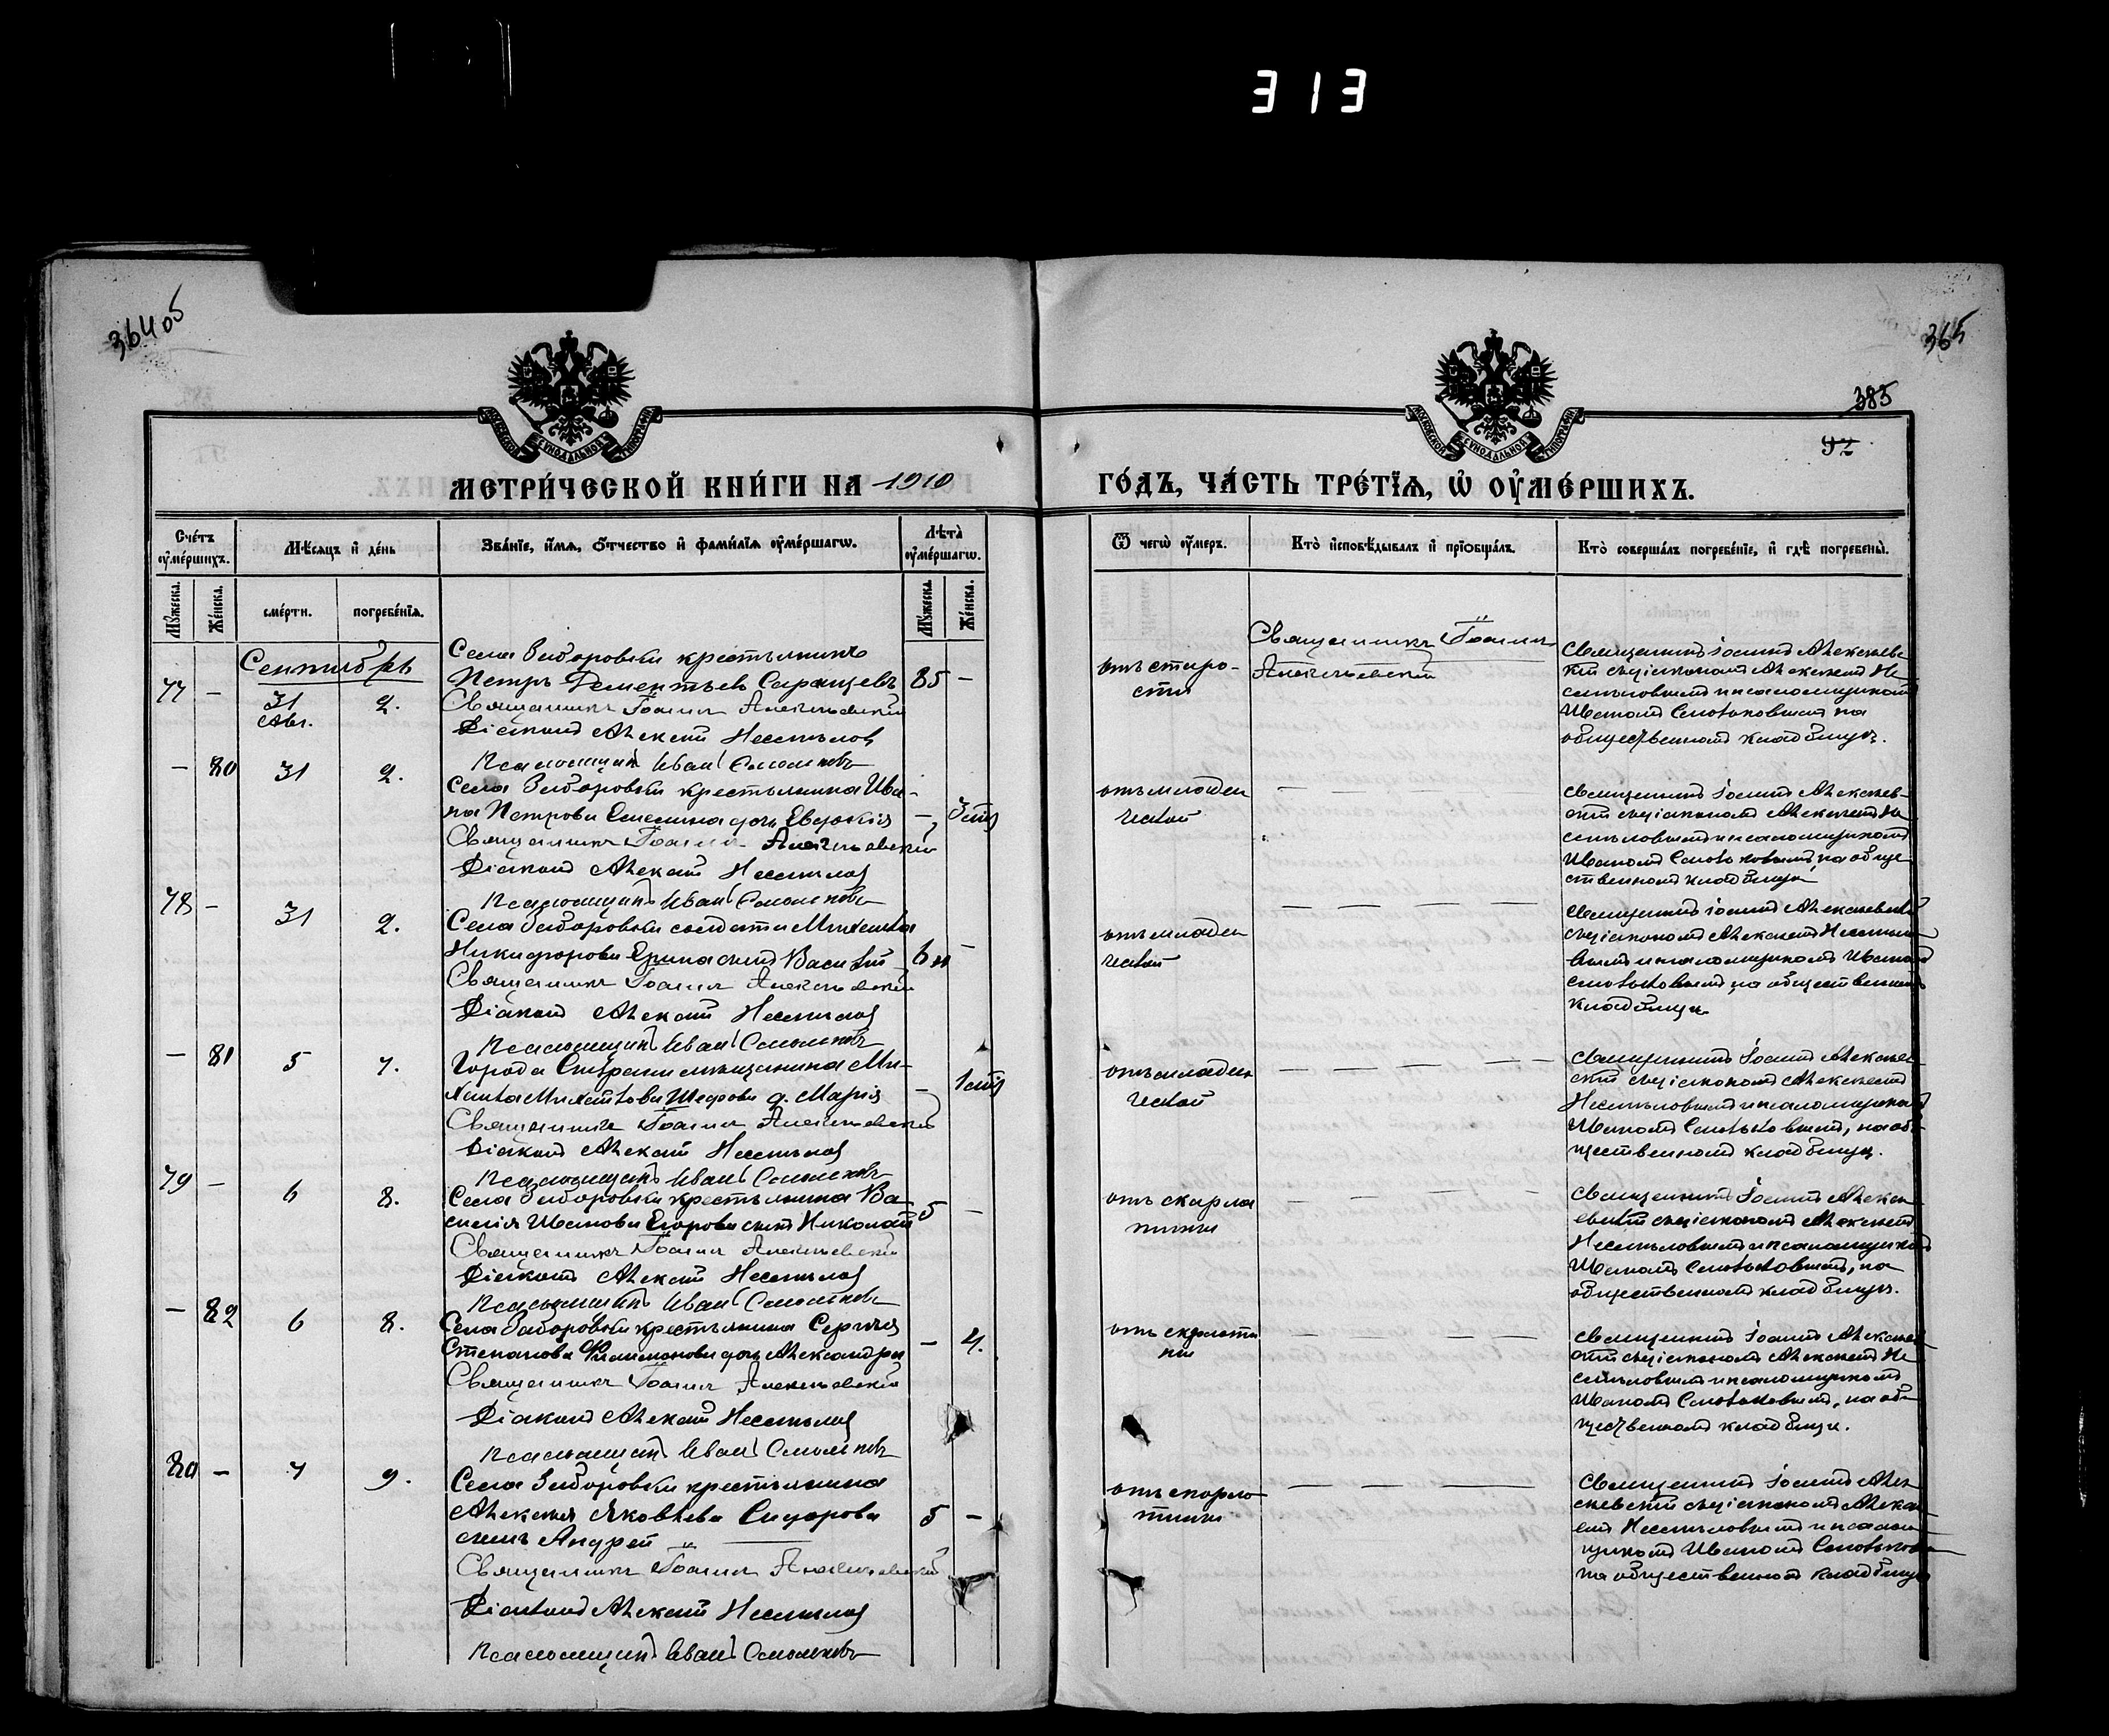 313
364 об
365
383
92
МОСКОВСКОЙ СУНОДАЛЬНОЙ ТИПОГРАФІИ
МОСКОВСКОЙ СУНОДАЛЬНОЙ ТИПОГРАФІИ
МЕТРИ́ЧЕСКОЙ КНИ́ГИ НА 1910
ГО́ДЪ, ЧА́СТЬ ТРЕ́ТЇѦ, Ѡ҆ ОУ҆МЕ́РШИХЪ.
Сче́тъ оу҆ме́ршихъ.
Мѣ́сѧцъ и҆ де́нь
Зва́нїе, и҆́мѧ, ѻ҆́тчество и҆ фами́лїѧ оу҆ме́ршагѡ.
Лѣ́та̀ оу҆ме́ршагѡ.
Ѿ чегѡ̀ оу҆́меръ.
Кто̀ и҆сповѣ́дывалъ и҆ прїѡбща́лъ.
Кто̀ соверша́лъ погребе́нїе, и҆ гдѣ̀ погребены̀.
Мꙋ́жеска.
Же́нска.
сме́рти.
погребе́нїѧ.
Мꙋ́жеска
Же́нска.
Сентябрь
77 - 31 Авг. 2.
Села Заборовки крестьянинъ
Петръ Дементьевъ Саранцевъ 85 -
Священникъ Іоаннъ Алексѣевскій
Діаконъ Алексѣй Несмѣловъ
Псаломщикъ Иванъ Смольковъ
отъ старо-
сти
Священникъ Іоаннъ
Алексѣевскій
Священникъ Іоаннъ Алексѣевс
кій съ діакономъ Алексѣемъ Не
смѣловымъ и псаломщикомъ
Иваномъ Смольковымъ на
общественномъ кладбищѣ.
- 80 31 2.
Села Заборовки крестьянина Ива-
на Петрова Емелина дочь Евдокія -
Священникъ Іоаннъ Алексѣевскій
Діаконъ Алексѣй Несмѣловъ
Псаломщикъ Иванъ Смольковъ
отъ младен
ческой
Священникъ Іоаннъ Алексѣев-
скій съ діакономъ Алексѣемъ Не
смѣловымъ и псаломщикомъ
Иваномъ Смольковымъ, на обще
ственномъ кладбищѣ
78 - 31 2.
Села Заборовки солдата Михаила
Никифорова Ерина сынъ Василій 6 н -
Священникъ Іоаннъ Алексѣевскій
Діаконъ Алексѣй Несмѣловъ
Псаломщикъ Иванъ Смольковъ
отъ младен
ческой
Священникъ Іоаннъ Алексѣевскій
съ діакономъ Алексѣемъ Несмѣло
вымъ и псаломщикомъ Иваномъ
Смольковымъ на общественномъ
кладбищѣ
- 81 5 7.
Города Сызрани мѣщанина Ми-
хаила Михайлова Шедрова д. Марія -
Священникъ Іоаннъ Алексѣевскій
Діаконъ Алексѣй Несмѣловъ
Псаломщикъ Иванъ Смольковъ
отъ младен
ческой
Священникъ Іоаннъ Алексѣев
скій съ діакономъ Алексѣемъ
Несмѣловымъ и псаломщикомъ
Иваномъ Смольковымъ, на об-
щественномъ кладбищѣ.
79 - 6 8.
Села Заборовки крестьянина Ва
силія Иванова Егорова сынъ Николай 5 -
Священникъ Іоаннъ Алексѣевскій
Діаконъ Алексѣй Несмѣловъ
Псаломщикъ Иванъ Смольковъ
отъ скарла
тины
Священникъ Іоаннъ Алексѣ
евскій съ діакономъ Алексѣемъ
Несмѣловымъ и псаломщикомъ
Иваномъ Смольковымъ, на
общественномъ кладбищѣ.
- 82 6 8.
Села Заборовки крестьянина Сергѣя
Степанова Филимонова дочь Александра - 4.
Священникъ Іоаннъ Алексѣевскій
Діаконъ Алексѣй Несмѣловъ
Псаломщикъ Иванъ Смольковъ
отъ скарлати
ны
Священникъ Іоаннъ Алексѣев
скій съ діакономъ Алексѣемъ Не
смѣловымъ и псаломщикомъ
Иваномъ Смольковымъ, на об-
щественномъ кладбищѣ.
80 - 7 9.
Села Заборовки крестьянина
Алексѣя Яковлева Сидорова 5 -
сынъ Андрей
Священникъ Іоаннъ Алексѣевскій
Діаконъ Алексѣй Несмѣловъ
Псаломщикъ Иванъ Смольковъ
отъ скарла
тины
Священникъ Іоаннъ Алек
сѣевскій съ діакономъ Алексѣ
емъ Несмѣловымъ и псалом
щикомъ Иваномъ Смольковы
на общественномъ кладбищѣ